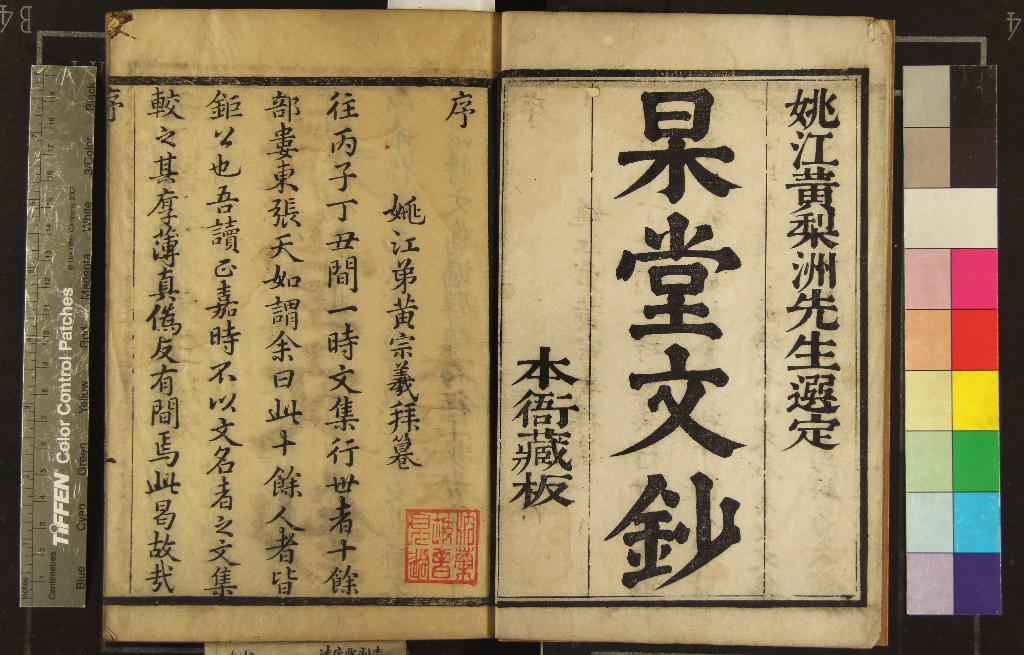 姚江黃梨洲先生選定
杲堂文鈔
本衙藏板
序
姚江弟黃宗羲拜纂
往丙子丁丑間一時文集行世者十餘
部婁東張天如謂余曰此十餘人者皆
鉅公也吾讀正嘉時不以文名者之文集
較之其厚薄真僞反有間焉此曷故哉
序
TIFFEN Color Control Patches
Blue
Cyan
Green
Yellow
Red
Magenta
White
3/Color
Black
Inches
Centimetres
B4